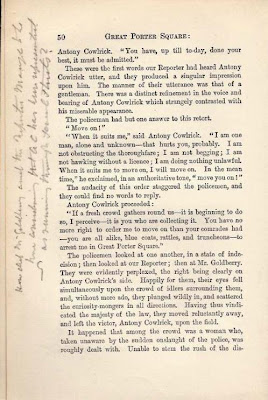 50 GREAT PORTER SQUARE:
Antony Cowlrick. "You have, up till to-day, done your
best, it must be admitted."
These were the first words our Reporter had heard Antony
Cowlrick utter, and they produced a singular impression
upon him. The manner of their utterance was that of a
gentleman. There was a distinct refinement in the voice and
bearing of Antony Cowlrick which strangely contrasted with
his miserable appearance.
The policeman had but one answer to this retort.
"Move on!"
"When it suits me," said Antony Cowlrick. "I am one
man, alone and unknown—that hurts you, probably. I am
not obstructing the thoroughfare; I am not begging; I am
not hawking without a licence; I am doing nothing unlawful.
When it suits me to move on, I will move on. In the mean
time," he exclaimed, in an authoritive tone, "move you on!"
The audacity of this order staggered the policemen, and
they could find no words to reply.
Antony Cowlrick proceeded:
"If a fresh crowd gathers round us—it is beginning to do
so, I perceive—it is you who are collecting it. You have no
more right to order me to move on than your comrades had
—you are all alike, blue coats, rattles, and truncheons—to
arrest me in Great Porter Square."
The policemen looked at one another, in a state of inde-
cision; then looked at our Reporter; then at Mr. Goldberry.
They were evidently perplexed, the right being clearly on
Antony Cowlrick's side. Happily for them, their eyes fell
simultaneously upon the crowd of idlers surrounding them,
and, without more ado, they plunged wildly in, and scattered
the curiosity-mongers in all directions. Having thus vindi-
cated the majesty of the law, they moved reluctantly away,
and left the victor, Antony Cowlrick, upon the field.
It happened that among the crowd was a woman who,
taken unawares by the sudden onslaught of the police, was
roughly dealt with. Unable to stem the rush of the dis-